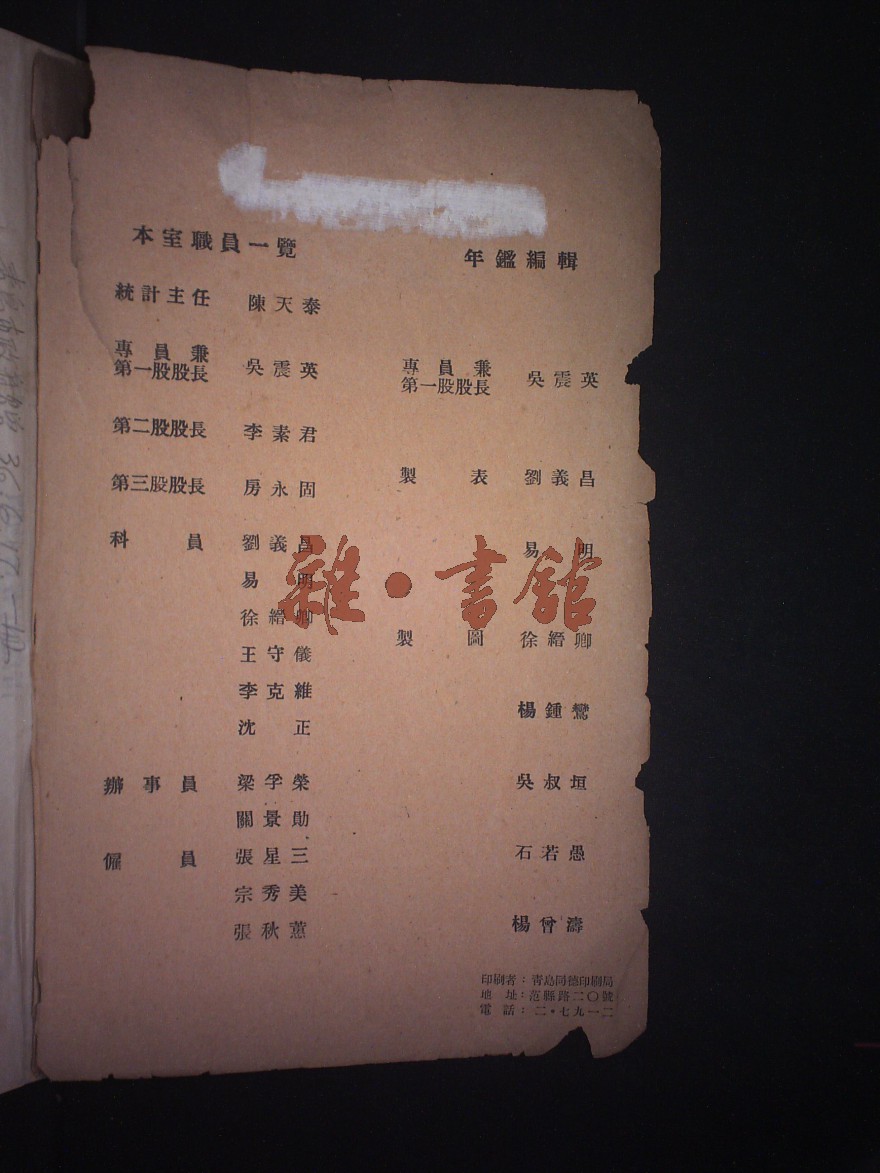 本室職員一覽
統計主任 陳天泰
專員兼
第一股股長 吳震英
第二股股長 李素君
第三股股長 房永固
科員 劉義昌
易明
徐縉卿
王守儀
李克維
沈正
辦事員 梁孚榮
關景勛
僱員 張星三
宗秀美
張秋蕙
年鑑編輯
專員兼
第一股股長 吳震英
製表 劉義昌
易明
製圖 徐縉卿
楊鍾鸞
吳叔垣
石若愚
楊曾濤
印刷者：青島同德印刷局
地址：范縣路二〇號
電話：二・七九一二
雜・書館